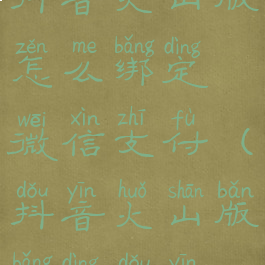 抖音火山版
zěn me bǎng dìng
怎么绑定
wēi xìn zhī fù
微信支付（
dǒu yīn huǒ shān bǎn
抖音火山版
bǎng dìng dǒu yīn